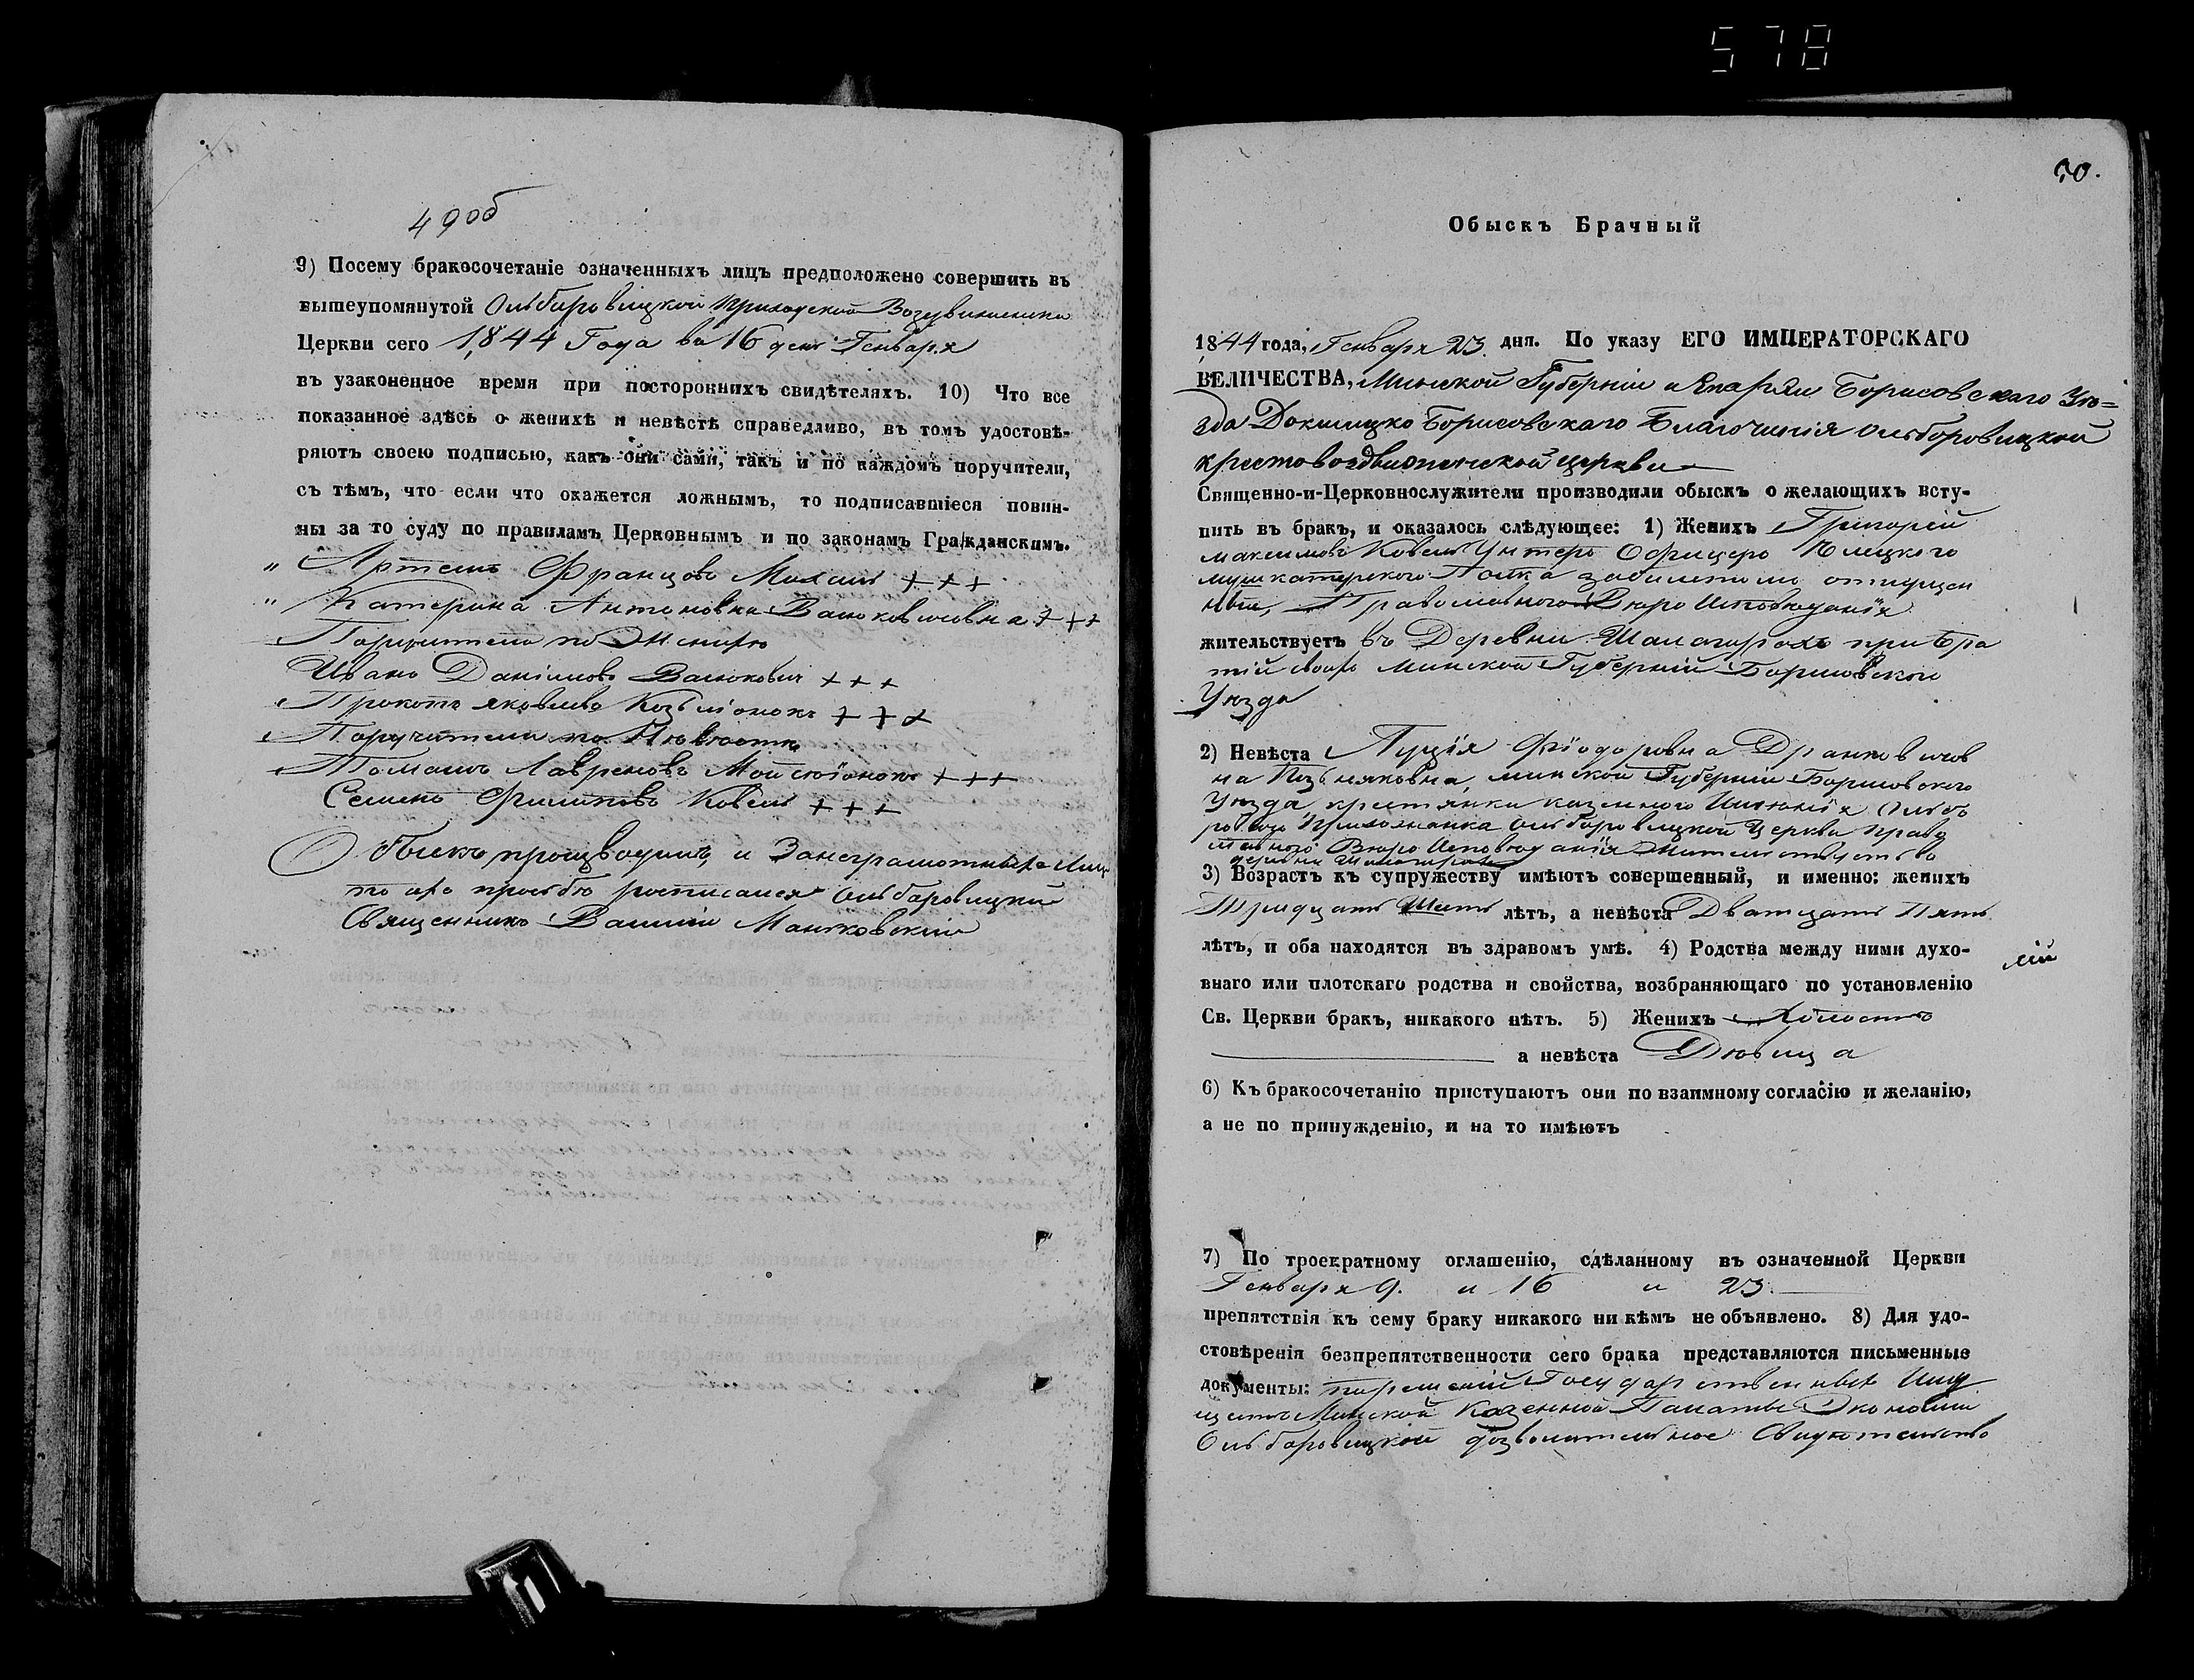 578
49об
9) Посему бракосочетаніе означенныхъ лицъ предположено совершить въ
вышеупомянутой Ольбаровицкой приходской Воздвиженска
Церкви сего 1844 Года въ 16 день Генваря
въ узаконенное время при постороннихъ свидѣтеляхъ. 10) Что все
показанное здѣсь о женихѣ и невѣстѣ справедливо, въ томъ удостовѣ-
ряютъ своею подписью, какъ они сами, такъ и по каждомъ поручители,
съ тѣмъ, что если что окажется ложнымъ, то подписавшіеся повин-
ны за то суду по правиламъ Церковнымъ и по законамъ Гражданскимъ.
Францовъ +++
Катерина Антоновна +++
Поручители по
Иванъ Даніиловъ Васюковичъ +++
Яковлевъ +++
Поручители по Нювюстю
Томашъ Лавреновъ +++
Семенъ Филиповъ Ковель +++
Обыскъ производилъ и
по ихъ прозбю росписался Ольбаровицкій
Священникъ Василій
50.
Обыскъ Брачный
1844 года, Генваря 23 дня. По указу ЕГО ИМПЕРАТОРСКАГО
ВЕЛИЧЕСТВА, Минской Губерніи и Епархіи Борисовскаго Уѣ=
зда Докшицко Борисовскаго Благочинія Ольборовицкой
крестовоздвиженской церкви
Священно-и-Церковнослужители производили обыскъ о желающихъ всту-
пить въ бракъ, и оказалось слѣдующее: 1) Женихъ Григорій
Максимовъ Ковель Унтеръ Офицеръ Елецкого
Полка отпущен
ный, Православного Вюро Исповюданія
жительствуетъ въ Деревни при бра
тій своей Минской Губерніи Борисовского
Уюзда
2) Невѣста Луція Фіодоровна
на Минской Губерніи Борисовского
Уюзда крестянка казенного Имюнія Ольба
Прихожанка Ольборовицкой Церкви Право
славного Вюро Исповюданія Жительствуетъ въ
деревни
3) Возрастъ къ супружеству имѣютъ совершенный, и именно: женихъ
Тридцать Шесть лѣтъ, а невѣста Дватцать Пять
лѣтъ, и оба находятся въ здравомъ умѣ. 4) Родства между ними духо-
внаго или плотскаго родства и свойства, возбраняющаго по установленію
Св. Церкви бракъ, никакого нѣтъ. 5) Женихъ Холостъ
а невѣста Дювица
6) Къ бракосочетанію приступаютъ они по взаимному согласію и желанію,
а не по принужденію, и на то имѣютъ
7) По троекратному оглашенію, сдѣланному въ означенной Церкви
Генваря 9. и 16 и 23.
препятствія къ сему браку никакого ни кѣмъ не объявлено. 8) Для удо-
стовѣренія безпрепятственности сего брака представляются письменные
документы: Государственныхъ Иму
ществъ Минской Казенной Палаты Экономіи
Ольборовицкой дозволительное Свидютельство